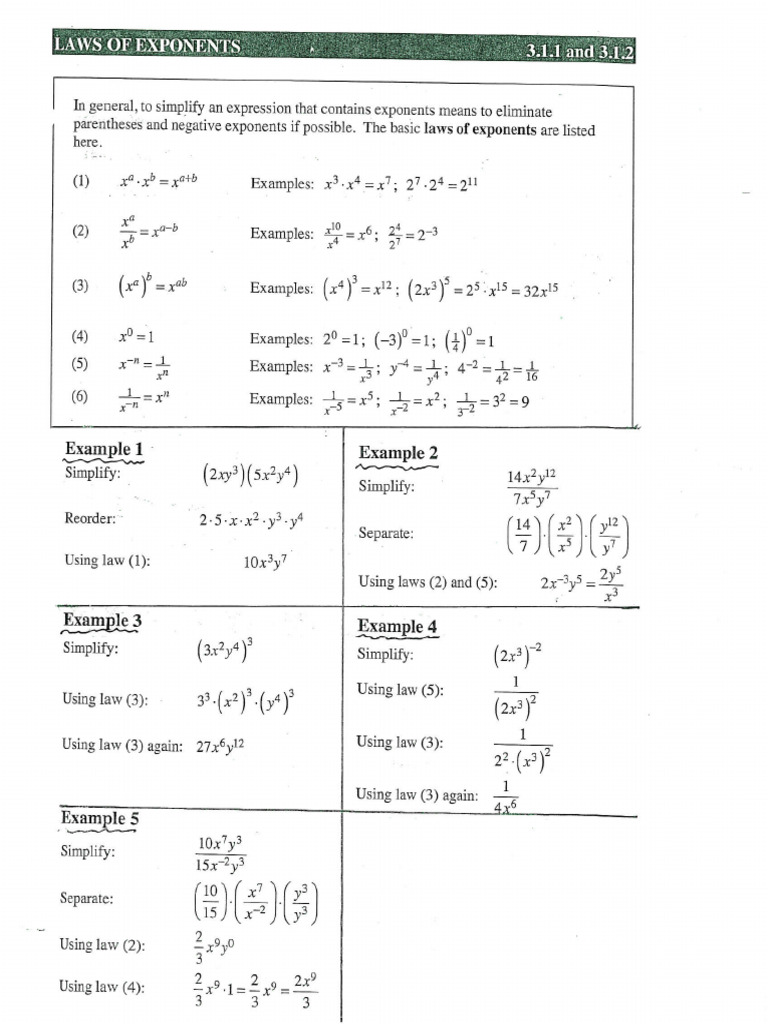 LAWS OF EXPONENTS 3.1.1 and 3.1.2
In general, to simplify an expression that contains exponents means to eliminate
parentheses and negative exponents if possible. The basic laws of exponents are listed
here.
(1) xᵃ · xᵇ = xᵃ⁺ᵇ Examples: x³ · x⁴ = x⁷; 2⁷ · 2⁴ = 2¹¹
(2) xᵃ/xᵇ = xᵃ⁻ᵇ Examples: x¹⁰/x⁴ = x⁶; 2⁴/2⁷ = 2⁻³
(3) (xᵃ)ᵇ = xᵃᵇ Examples: (x⁴)³ = x¹²; (2x³)⁵ = 2⁵ · x¹⁵ = 32x¹⁵
(4) x⁰ = 1 Examples: 2⁰ = 1; (−3)⁰ = 1; (1/4)⁰ = 1
(5) x⁻ⁿ = 1/xⁿ Examples: x⁻³ = 1/x³; y⁻⁴ = 1/y⁴; 4⁻² = 1/4² = 1/16
(6) 1/x⁻ⁿ = xⁿ Examples: 1/x⁻⁵ = x⁵; 1/x⁻² = x²; 1/3⁻² = 3² = 9
Example 1
Simplify: (2xy³)(5x²y⁴)
Reorder: 2 · 5 · x · x² · y³ · y⁴
Using law (1): 10x³y⁷
Example 2
Simplify: 14x²y¹²/7x⁵y⁷
Separate: (14/7) · (x²/x⁵) · (y¹²/y⁷)
Using laws (2) and (5): 2x⁻³y⁵ = 2y⁵/x³
Example 3
Simplify: (3x²y⁴)³
Using law (3): 3³ · (x²)³ · (y⁴)³
Using law (3) again: 27x⁶y¹²
Example 4
Simplify: (2x³)⁻²
Using law (5): 1/(2x³)²
Using law (3): 1/2² · (x³)²
Using law (3) again: 1/4x⁶
Example 5
Simplify: 10x⁷y³/15x⁻²y³
Separate: (10/15) · (x⁷/x⁻²) · (y³/y³)
Using law (2): 2/3 x⁹y⁰
Using law (4): 2/3 x⁹ · 1 = 2/3 x⁹ = 2x⁹/3